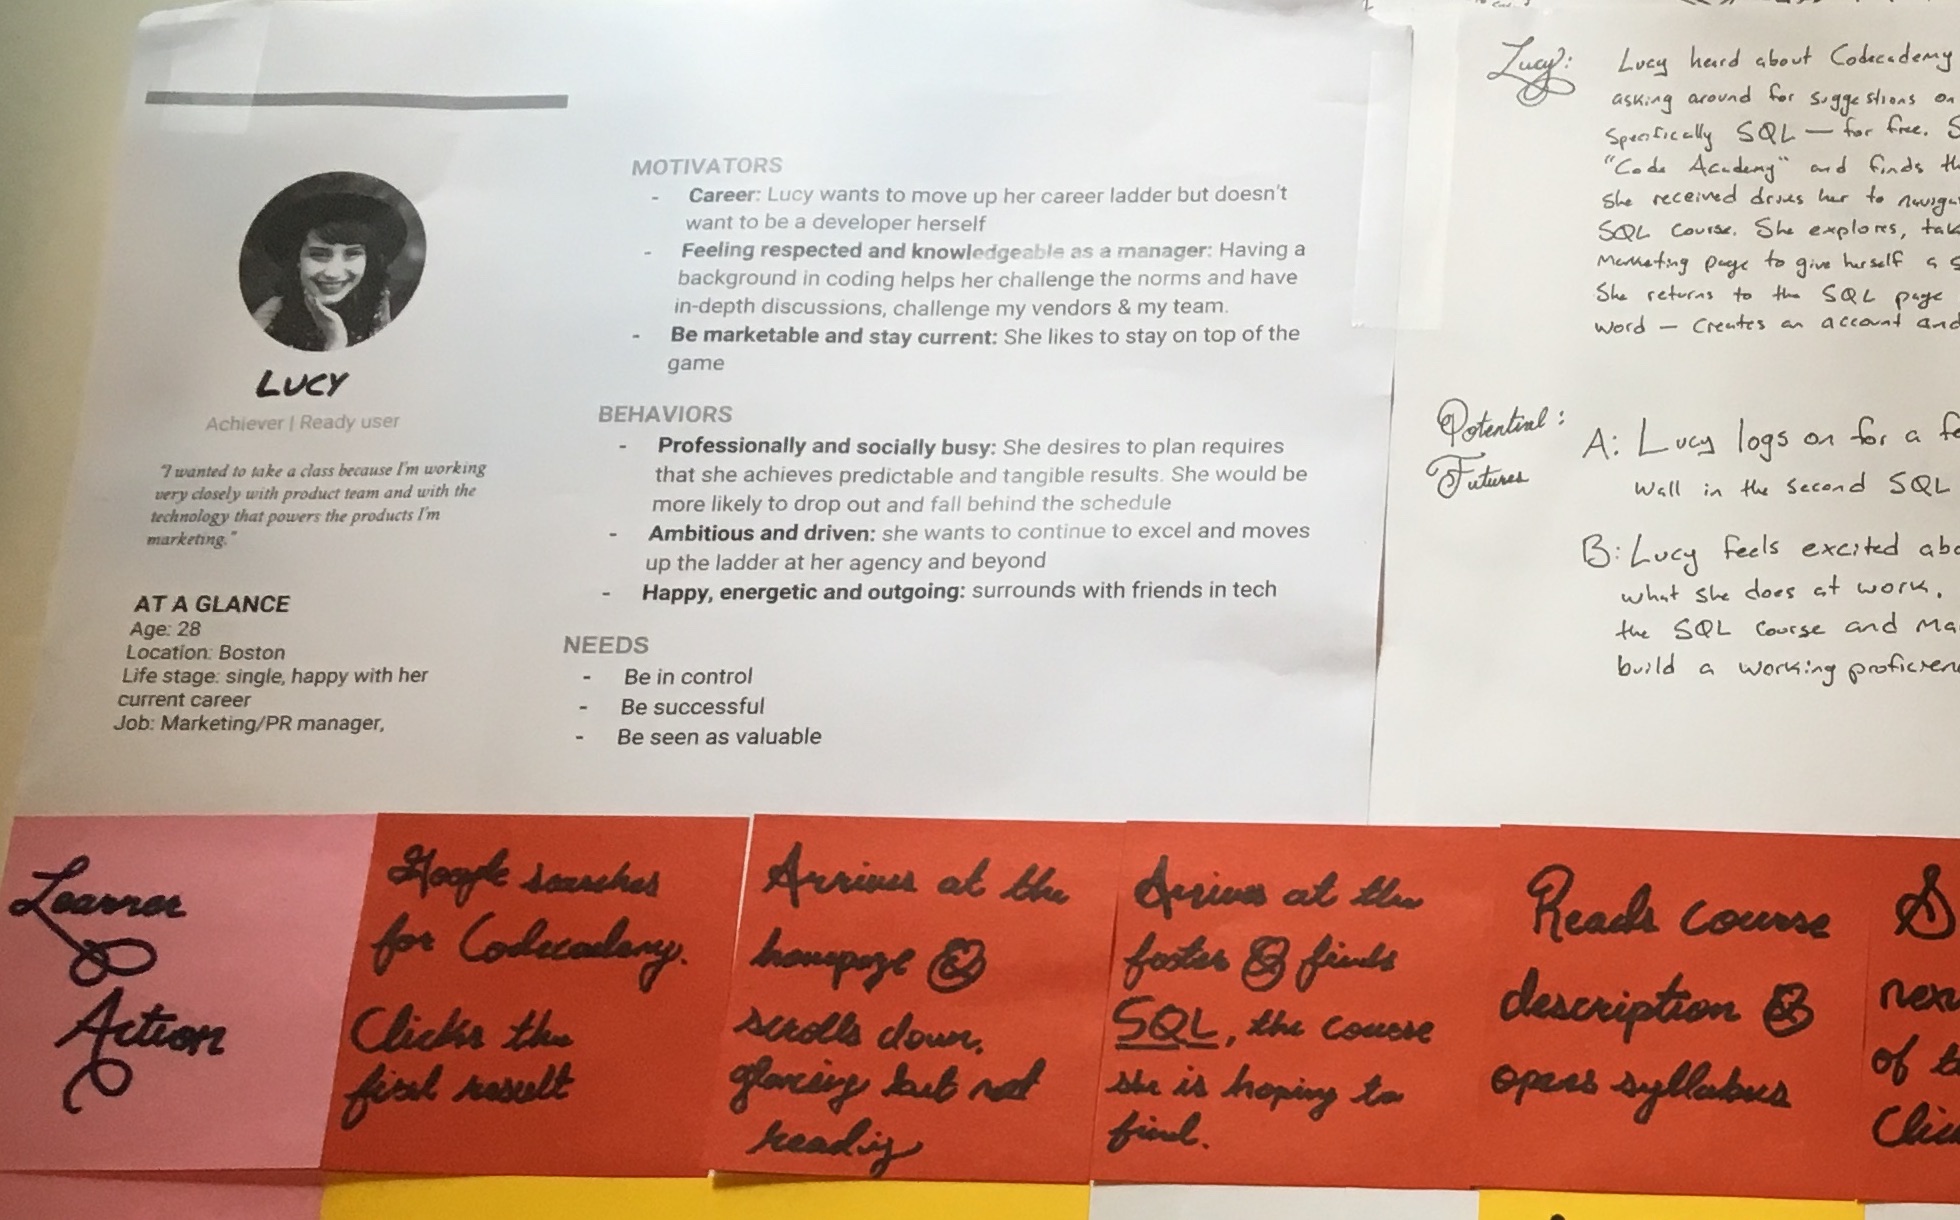 LUCY
Achiever | Ready user
"I wanted to take a class because I'm working
very closely with product team and with the
technology that powers the products I'm
marketing."
AT A GLANCE
Age: 28
Location: Boston
Life stage: single, happy with her
current career
Job: Marketing/PR manager,
MOTIVATORS
- Career: Lucy wants to move up her career ladder but doesn't
want to be a developer herself
- Feeling respected and knowledgeable as a manager: Having a
background in coding helps her challenge the norms and have
in-depth discussions, challenge my vendors & my team.
- Be marketable and stay current: She likes to stay on top of the
game
BEHAVIORS
- Professionally and socially busy: She desires to plan requires
that she achieves predictable and tangible results. She would be
more likely to drop out and fall behind the schedule
- Ambitious and driven: she wants to continue to excel and moves
up the ladder at her agency and beyond
- Happy, energetic and outgoing: surrounds with friends in tech
NEEDS
- Be in control
- Be successful
- Be seen as valuable
Lucy: Lucy heard about Codecademy
asking around for suggestions on
specifically SQL — for free. S
"Code Academy" and finds th
She received drives her to naviga
SQL course. She explores, tak
Marketing page to give herself a s
She returns to the SQL page
word — creates an account and
Potential Futures:
A: Lucy logs on for a fe
wall in the second SQL
B: Lucy feels excited abo
what she does at work.
the SQL course and ma
build a working proficien
Learner
Action
Google searches
for Codecademy.
Clicks the
first result
Arrives at the
homepage &
scrolls down,
glancing but not
reading
Arrives at the
footer & finds
SQL, the course
she is hoping to
find.
Reads course
description &
opens syllabus
S
nex
of t
Clic